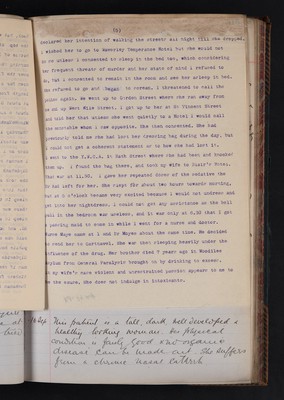 (2)
declared her intention of walking the streets all night till she dropped.
I wished her to go to Waverley Temperance Hotel but she would not
do so unless I consented to sleep in the bed was, which considering
her frequent threats of murder and her state of mind I refused to
do, but I consented to remain in the room and see her asleep in bed.
She refused to go and began to scream. I threatened to call the
police again. We went up to Gordon Street where she ran away from
me and up West Nile Street. I got up to her at St Vincent Street
and told her that unless she went quietly to a Hotel I would call
the constable whom I saw opposite. She then consented. She had
previously told me she had lost her dressing bag during the day, but
I could not get a coherent statement as to how she had lost it.
I went to the Y.W.C.A. in Bath Street where she had been and knocked
them up. I found the bag there, and took my wife to
This was at 11.50. I gave her repeated doses of the sedative the
Dr had left for her. She slept for about two hours towards morning,
but at 5 o'clock became very excited because I would not undress and
get into her nightdress. I could not get any assistance as the bell
pull in the bedroom was useless, and it was only at 8.30 that I got
a serving maid to come in while I went for a nurse and doctor.
Nurse Hope came at 1 and Dr Mayes about the same time. We decided
to send her to Hartwood. She was then sleeping heavily under the
influence of the drug. Her brother died 7 years ago in Woodilee
Asylum from General Paralysis brought on by drinking to excess.
My wife's more violent and unrestrained passion appear to me to
be the cause. She does not indulge in intoxicants.
This patient is a tall, dark, well developed &
healthy looking woman. Her physical
condition is fairly good & no organic
disease can be made out. She suffers
from a chronic nasal catarrh